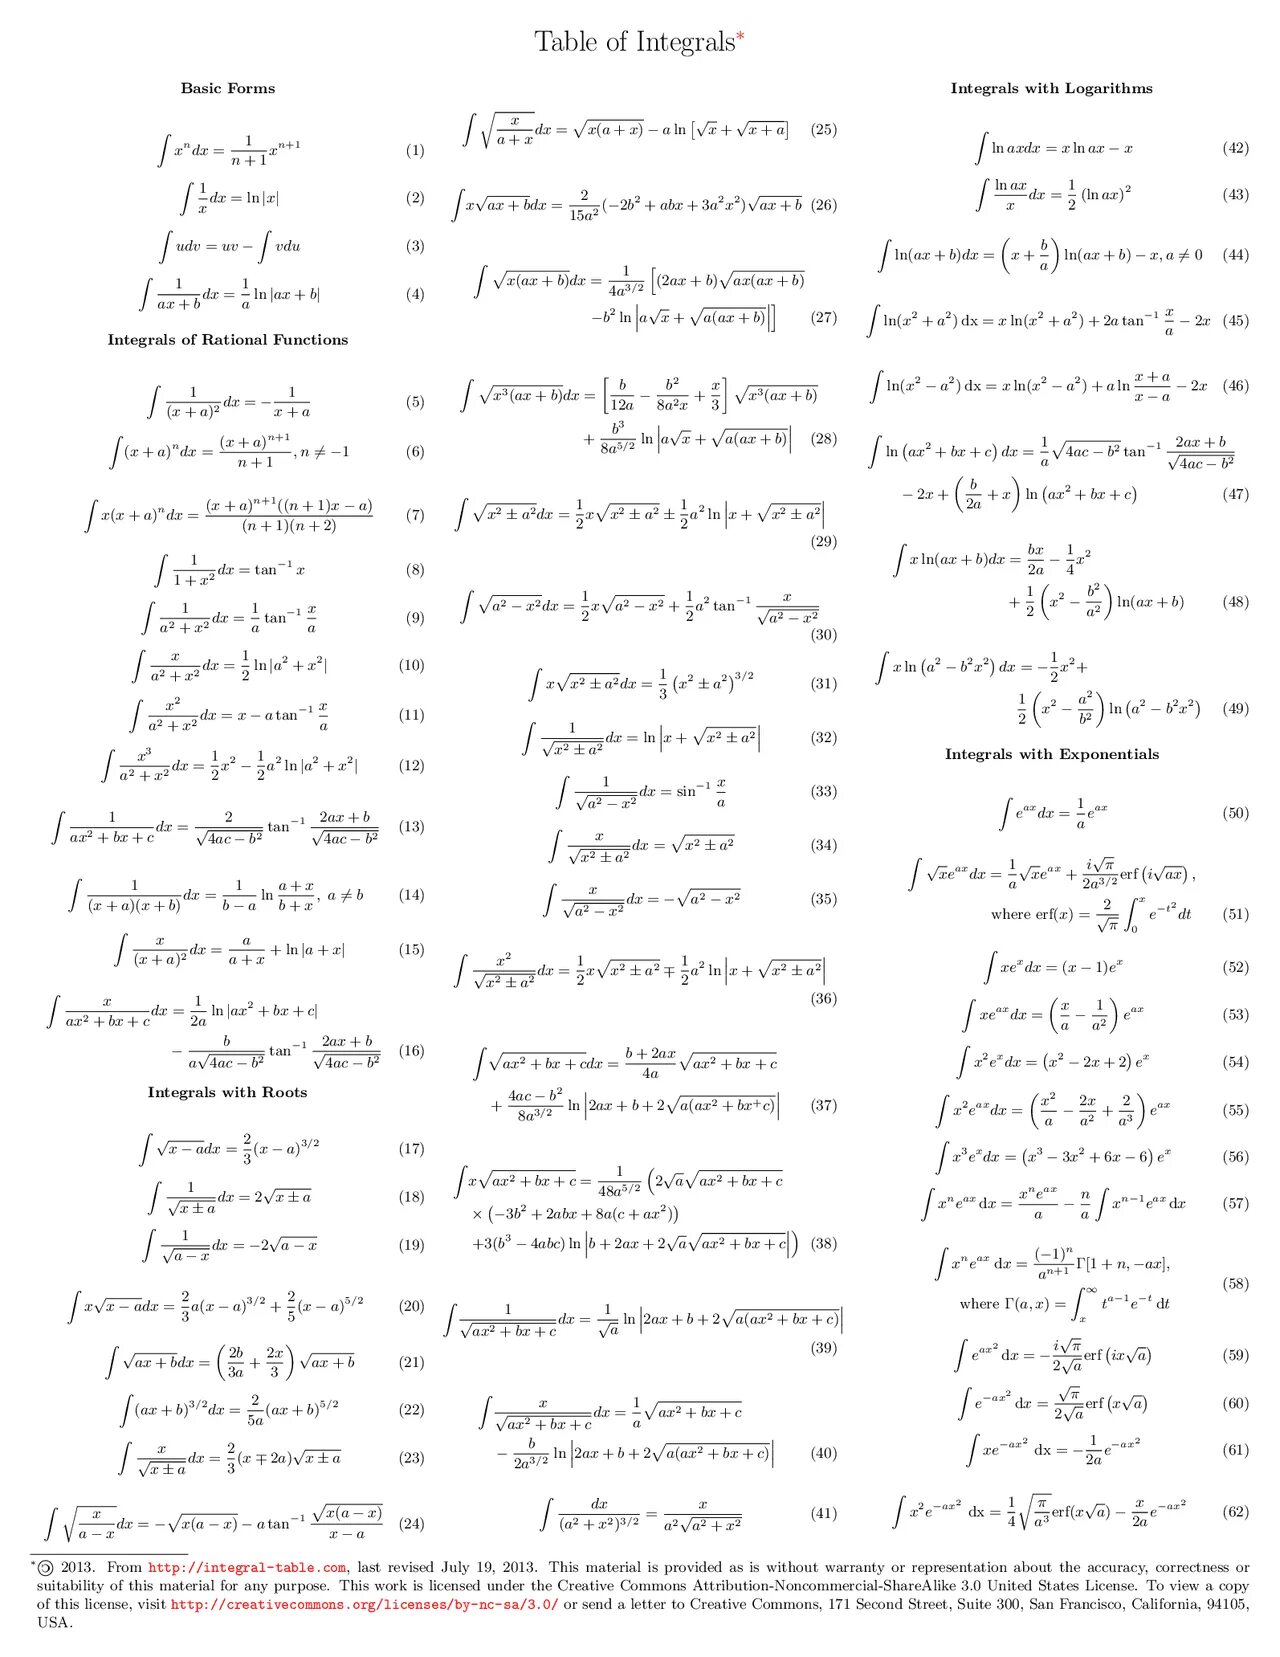 Table of Integrals*
Basic Forms
∫ xⁿ dx = 1/(n + 1) xⁿ⁺¹ (1)
∫ 1/x dx = ln |x| (2)
∫ udv = uv − ∫ vdu (3)
∫ 1/(ax + b) dx = 1/a ln |ax + b| (4)
Integrals of Rational Functions
∫ 1/(x + a)² dx = − 1/(x + a) (5)
∫ (x + a)ⁿ dx = (x + a)ⁿ⁺¹/(n + 1), n ≠ −1 (6)
∫ x(x + a)ⁿ dx = (x + a)ⁿ⁺¹((n + 1)x − a)/((n + 1)(n + 2)) (7)
∫ 1/(1 + x²) dx = tan⁻¹ x (8)
∫ 1/(a² + x²) dx = 1/a tan⁻¹ x/a (9)
∫ x/(a² + x²) dx = 1/2 ln |a² + x²| (10)
∫ x²/(a² + x²) dx = x − a tan⁻¹ x/a (11)
∫ x³/(a² + x²) dx = 1/2 x² − 1/2 a² ln |a² + x²| (12)
∫ 1/(ax² + bx + c) dx = 2/√(4ac − b²) tan⁻¹ (2ax + b)/√(4ac − b²) (13)
∫ 1/((x + a)(x + b)) dx = 1/(b − a) ln (a + x)/(b + x), a ≠ b (14)
∫ x/(x + a)² dx = a/(a + x) + ln |a + x| (15)
∫ x/(ax² + bx + c) dx = 1/(2a) ln |ax² + bx + c|
− b/(a√(4ac − b²)) tan⁻¹ (2ax + b)/√(4ac − b²) (16)
Integrals with Roots
∫ √(x − a) dx = 2/3 (x − a)^(3/2) (17)
∫ 1/√(x ± a) dx = 2√(x ± a) (18)
∫ 1/√(a − x) dx = −2√(a − x) (19)
∫ x√(x − a) dx = 2/3 a(x − a)^(3/2) + 2/5 (x − a)^(5/2) (20)
∫ √(ax + b) dx = (2b/3a + 2x/3) √(ax + b) (21)
∫ (ax + b)^(3/2) dx = 2/(5a) (ax + b)^(5/2) (22)
∫ x/√(x ± a) dx = 2/3 (x ∓ 2a)√(x ± a) (23)
∫ √(x/(a − x)) dx = −√(x(a − x)) − a tan⁻¹ √(x(a − x))/(x − a) (24)
∫ √(x/(a + x)) dx = √(x(a + x)) − a ln [√x + √(x + a)] (25)
∫ x√(ax + b) dx = 2/(15a²) (−2b² + abx + 3a²x²)√(ax + b) (26)
∫ √(x(ax + b)) dx = 1/(4a^(3/2)) [(2ax + b)√(ax(ax + b))
−b² ln |a√x + √(a(ax + b))|] (27)
∫ √(x³(ax + b)) dx = [b/(12a) − b²/(8a²x) + x/3] √(x³(ax + b))
+ b³/(8a^(5/2)) ln |a√x + √(a(ax + b))| (28)
∫ √(x² ± a²) dx = 1/2 x√(x² ± a²) ± 1/2 a² ln |x + √(x² ± a²)|
(29)
∫ √(a² − x²) dx = 1/2 x√(a² − x²) + 1/2 a² tan⁻¹ x/√(a² − x²)
(30)
∫ x√(x² ± a²) dx = 1/3 (x² ± a²)^(3/2) (31)
∫ 1/√(x² ± a²) dx = ln |x + √(x² ± a²)| (32)
∫ 1/√(a² − x²) dx = sin⁻¹ x/a (33)
∫ x/√(x² ± a²) dx = √(x² ± a²) (34)
∫ x/√(a² − x²) dx = −√(a² − x²) (35)
∫ x²/√(x² ± a²) dx = 1/2 x√(x² ± a²) ∓ 1/2 a² ln |x + √(x² ± a²)|
(36)
∫ √(ax² + bx + c) dx = (b + 2ax)/(4a) √(ax² + bx + c)
+ (4ac − b²)/(8a^(3/2)) ln |2ax + b + 2√(a(ax² + bx⁺c))| (37)
∫ x√(ax² + bx + c) = 1/(48a^(5/2)) (2√a√(ax² + bx + c)
× (−3b² + 2abx + 8a(c + ax²))
+3(b³ − 4abc) ln |b + 2ax + 2√a√(ax² + bx + c)|) (38)
∫ 1/√(ax² + bx + c) dx = 1/√a ln |2ax + b + 2√(a(ax² + bx + c))|
(39)
∫ x/√(ax² + bx + c) dx = 1/a √(ax² + bx + c)
− b/(2a^(3/2)) ln |2ax + b + 2√(a(ax² + bx + c))| (40)
∫ dx/(a² + x²)^(3/2) = x/(a²√(a² + x²)) (41)
Integrals with Logarithms
∫ ln axdx = x ln ax − x (42)
∫ (ln ax)/x dx = 1/2 (ln ax)² (43)
∫ ln(ax + b)dx = (x + b/a) ln(ax + b) − x, a ≠ 0 (44)
∫ ln(x² + a²) dx = x ln(x² + a²) + 2a tan⁻¹ x/a − 2x (45)
∫ ln(x² − a²) dx = x ln(x² − a²) + a ln (x + a)/(x − a) − 2x (46)
∫ ln (ax² + bx + c) dx = 1/a √(4ac − b²) tan⁻¹ (2ax + b)/√(4ac − b²)
− 2x + (b/2a + x) ln (ax² + bx + c) (47)
∫ x ln(ax + b)dx = bx/2a − 1/4 x²
+ 1/2 (x² − b²/a²) ln(ax + b) (48)
∫ x ln (a² − b²x²) dx = −1/2 x²+
1/2 (x² − a²/b²) ln (a² − b²x²) (49)
Integrals with Exponentials
∫ e^(ax) dx = 1/a e^(ax) (50)
∫ √x e^(ax) dx = 1/a √x e^(ax) + i√π/(2a^(3/2)) erf (i√(ax)),
where erf(x) = 2/√π ∫₀ˣ e^(−t²) dt (51)
∫ xeˣ dx = (x − 1)eˣ (52)
∫ xe^(ax) dx = (x/a − 1/a²) e^(ax) (53)
∫ x²eˣ dx = (x² − 2x + 2) eˣ (54)
∫ x²e^(ax) dx = (x²/a − 2x/a² + 2/a³) e^(ax) (55)
∫ x³eˣ dx = (x³ − 3x² + 6x − 6) eˣ (56)
∫ xⁿe^(ax) dx = xⁿe^(ax)/a − n/a ∫ xⁿ⁻¹e^(ax) dx (57)
∫ xⁿe^(ax) dx = (−1)ⁿ/aⁿ⁺¹ Γ[1 + n, −ax],
where Γ(a, x) = ∫ₓ^∞ t^(a−1)e^(−t) dt (58)
∫ e^(ax²) dx = − i√π/(2√a) erf (ix√a) (59)
∫ e^(−ax²) dx = √π/(2√a) erf (x√a) (60)
∫ xe^(−ax²) dx = − 1/(2a) e^(−ax²) (61)
∫ x²e^(−ax²) dx = 1/4 √(π/a³) erf(x√a) − x/(2a) e^(−ax²) (62)
*🄯 2013. From http://integral-table.com, last revised July 19, 2013. This material is provided as is without warranty or representation about the accuracy, correctness or
suitability of this material for any purpose. This work is licensed under the Creative Commons Attribution-Noncommercial-ShareAlike 3.0 United States License. To view a copy
of this license, visit http://creativecommons.org/licenses/by-nc-sa/3.0/ or send a letter to Creative Commons, 171 Second Street, Suite 300, San Francisco, California, 94105,
USA.